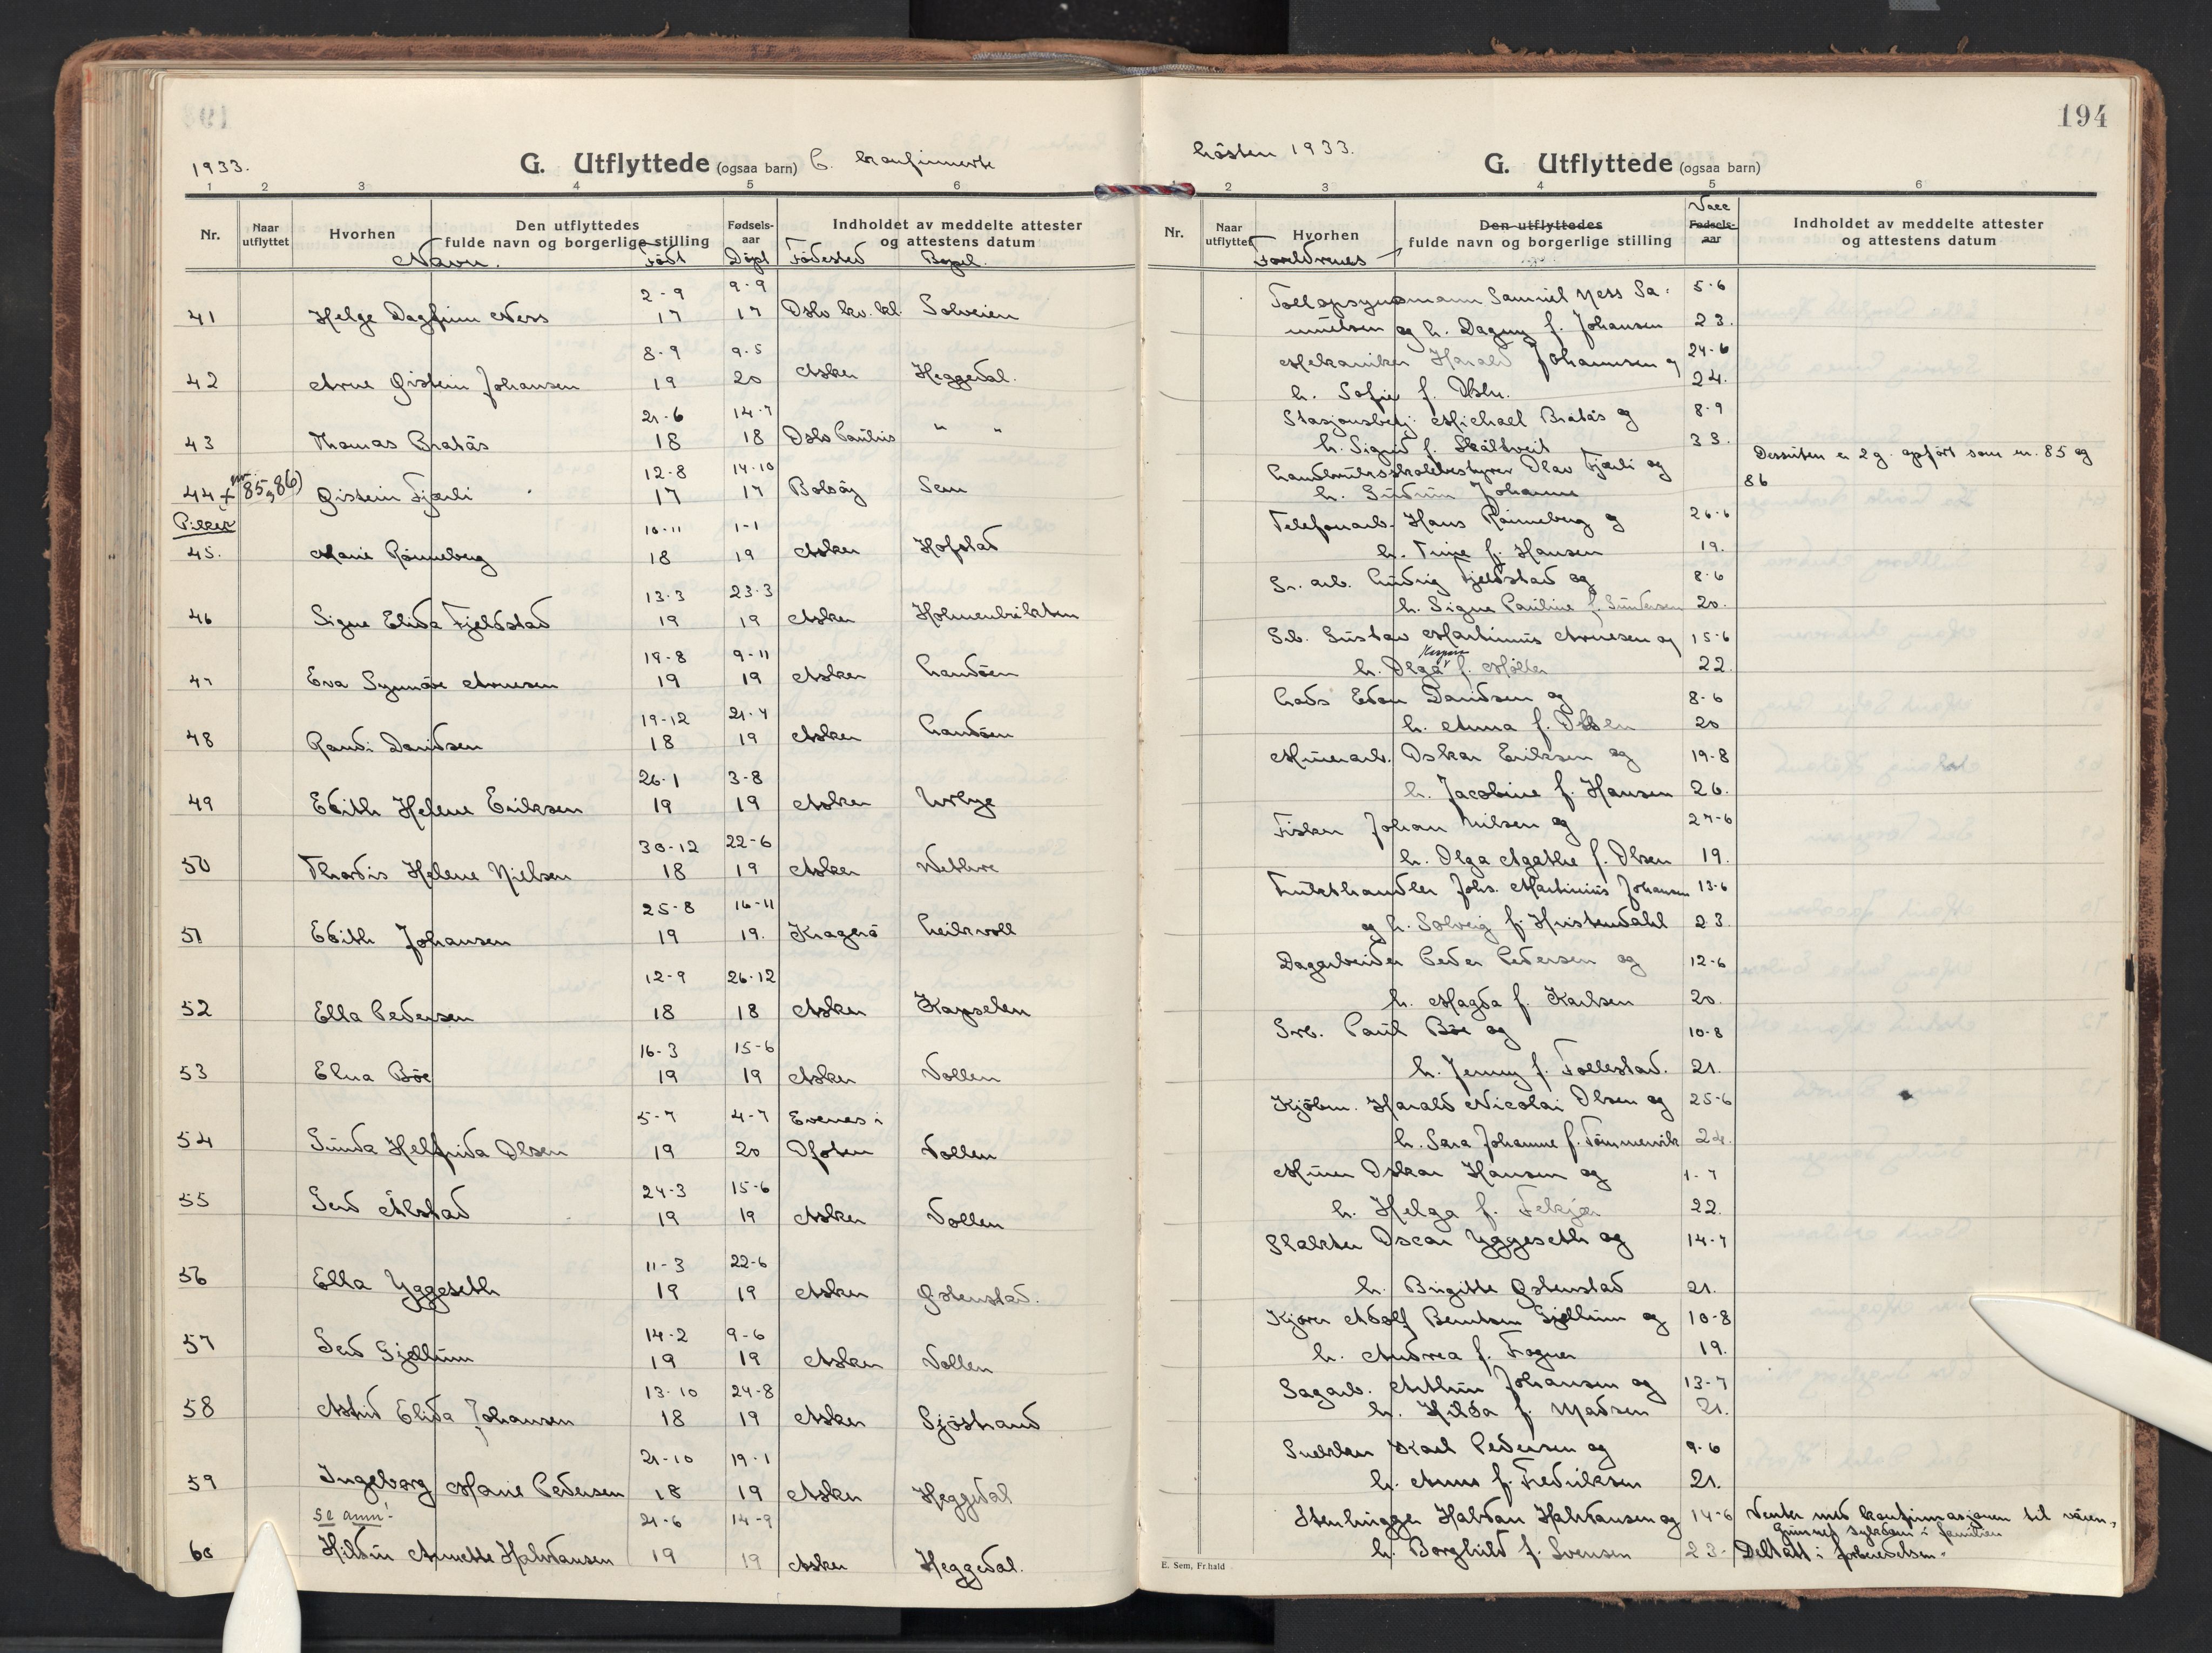 1933.
G. Utflyttede (ogsaa barn) C. konfirmerte
1 2 3 4 5 6
Nr. Naar utflyttet Hvorhen Den utflyttedes fulde navn og borgerlige stilling Fødsels-aar Indholdet av meddelte attester og attestens datum
Navn. Født Døpt Fødested Bopel.
2-9 9-9
41 Helge Dagfinn Ness 17 17 Oslo kv. kl. Solveien
8-9 9-5
42 Arne Øistein Johansen 19 20 Asker Heggedal.
21-6 14-7
43 Thomas Bratås 18 18 Oslo Paulus " "
12-8 14-10
44 + nr. 85, 86) Øistein Fjærli 17 17 Bolsøy Sem
Piker
10-11 1-1
45. Marie Rønneberg 18 19 Asker Hofstad
13-3 23-3
46 Signe Elida Fjeldstad 19 19 Asker Holmenbukten
19-8 9-11
47 Eva Synnøve Arnesen 19 19 Asker Landøen
19-12 21-4
48 Randi Davidsen 18 19 Asker Landøen
26-1 3-8
49 Edith Helene Eriksen 19 19 Asker
30-12 22-6
50 Thordis Helene Nielsen 18 19 Asker Nethre
25-8 16-11
51 Edith Johansen 19 19. Kragerø Leikvoll
12-9 26-12
52 Ella Pedersen 18 18 Asker
16-3 15-6
53 Elna Bøe 19 19 Asker Vollen
5-7 4-7 Evenes i
54 Gunda Helfrida Olsen 19 20 Ofoten Vollen
24-3 15-6
55 Gerd Ålstad 19 19 Asker Vollen
11-3 22-6
56 Ella Yggeseth 19 19 Asker Østenstad.
14-2 9-6
57 Gerd Gjellum 19 19 Asker Vollen
13-10 24-8
58 Astrid Elida Johansen 18 19 Asker Sjøstrand
21-10 19-1
59 Ingeborg Marie Pedersen 18 19 Asker Heggedal
se anm! 21-6 14-9
60 Hildur Annette Halvdansen 19 19 Asker Heggedal.
194
høsten 1933.
G. Utflyttede (ogsaa barn)
1 2 3 4 5 6
Vacc
Nr. Naar utflyttet Hvorhen Den utflyttedes fulde navn og borgerlige stilling Fødsels-aar Indholdet av meddelte attester og attestens datum
Foreldrenes
Tollopsynsmann Samuel Ness Sa- 5-6
muelsen og h. Dagny f. Johansen 23.
Mekaniker Harald Johannsen og 24-6
h. Sofie f. Olsn. 24.
Stasjonsbetj. Michael Bratås og 8-9
h. Sigrid f. Skåltveit 33.
Landbruksskolebestyrer Olav Fjærli og Dessuten er 2 g. opført som nr. 85 og
h. Gudrun Johanne 86
Telefonarb. Hans Rønneberg og 26-6
h. Tine f. Hansen 19.
Gr. arb. Ludvig Fjeldstad og 8-6
h. Signe Pauline f. Gundersen 20.
Srb. Gustav Martinius Arnesen og 15-6
h. Olga f. Møller 22.
Lods Edon Davidsen og 8-6
h. Anna f. Olsen 20
Murerarb. Oskar Eriksen og 19-8
h. Jacobine f. Hansen 26.
Fisker Johan Nilsen og 27-6
h. Olga Agathe f. Olsen 19.
Frukthandler Johs. Martinius Johansen 13-6
og h. Solveig f. Hustendahl 23.
Dagarbeider Peder Pedersen og 12-6
h. Magda f. Karlsen 20.
Srb. Paul Bøe og 10-8
h. Jenny f. Tollestad. 21.
Kjøbm. Harald Nicolai Olsen og 25-6
h. Sara Johanne f. Tømmervik 24.
Murer Oskar Hansen og 1-7
h. Helga f. Fekjær 22.
Slakter Oscar Yggeseth og 14-7
h. Brigitte Østenstad 21.
Kjører Adolf Berntsen Gjellum og 10-8
h. Andrea f. Fogner 19.
Sagarb. Arthur Johansen og 13-7
h. Hilda f. Madsen 21.
Snekker Karl Pedersen og 9-6
h. Anna f. Fredriksen 21.
Stenhugger Halvdan Halvdansen og 14-6 Venter med konfirmasjonen til våren,
grunnet sykdom i familien
h. Borghild f. Svensen 23. Deltatt i forberedelsen.
E. Sem, Fr.hald